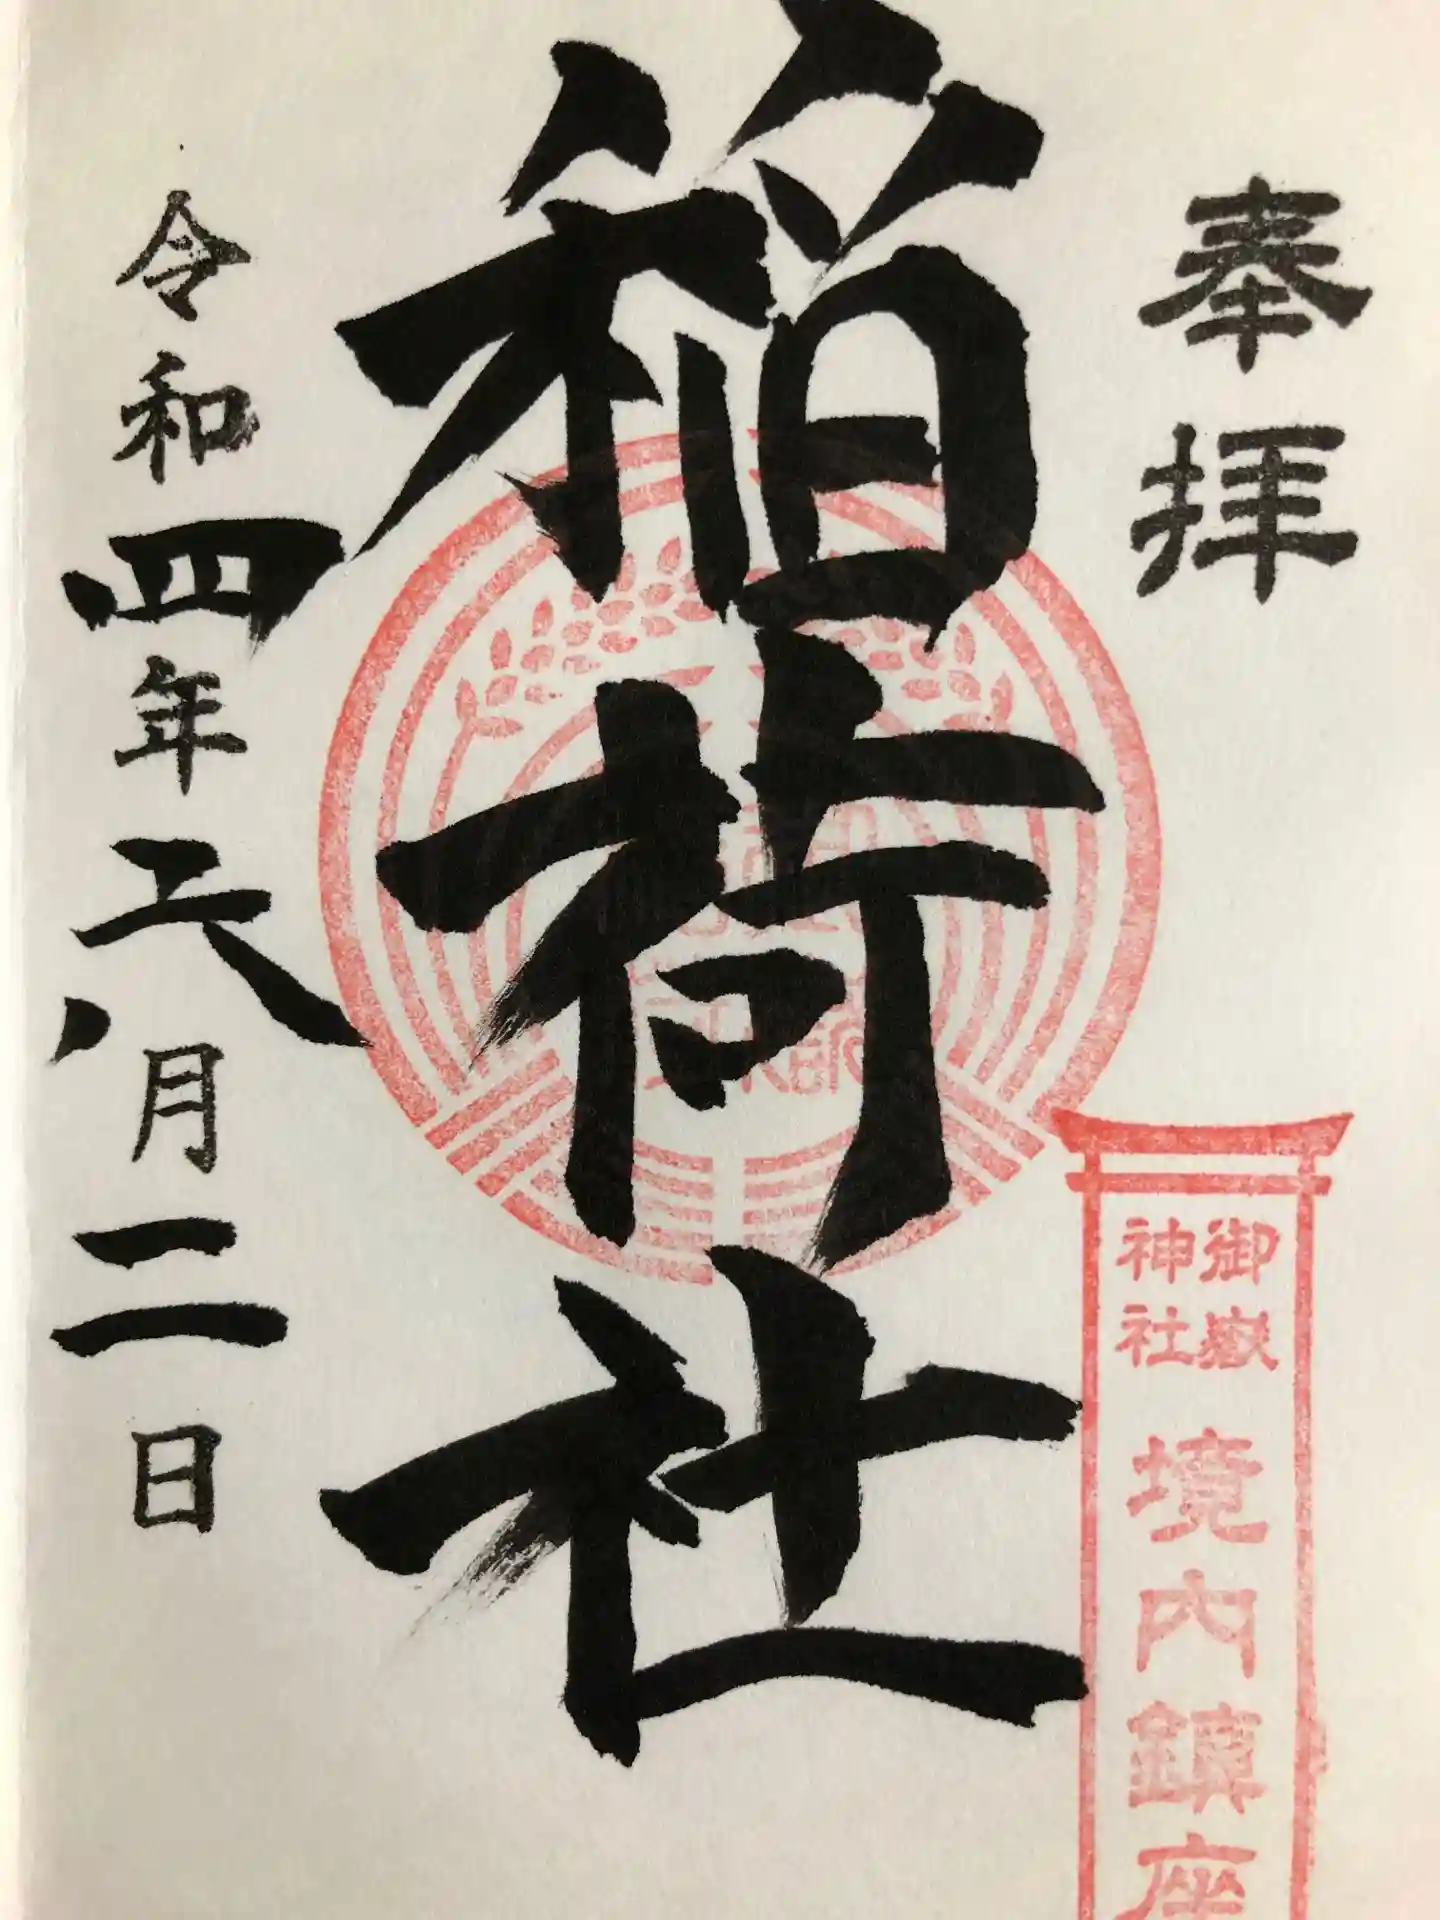 奉拝
御嶽
神社
境内鎮座
稲荷社
令和四年六月二日